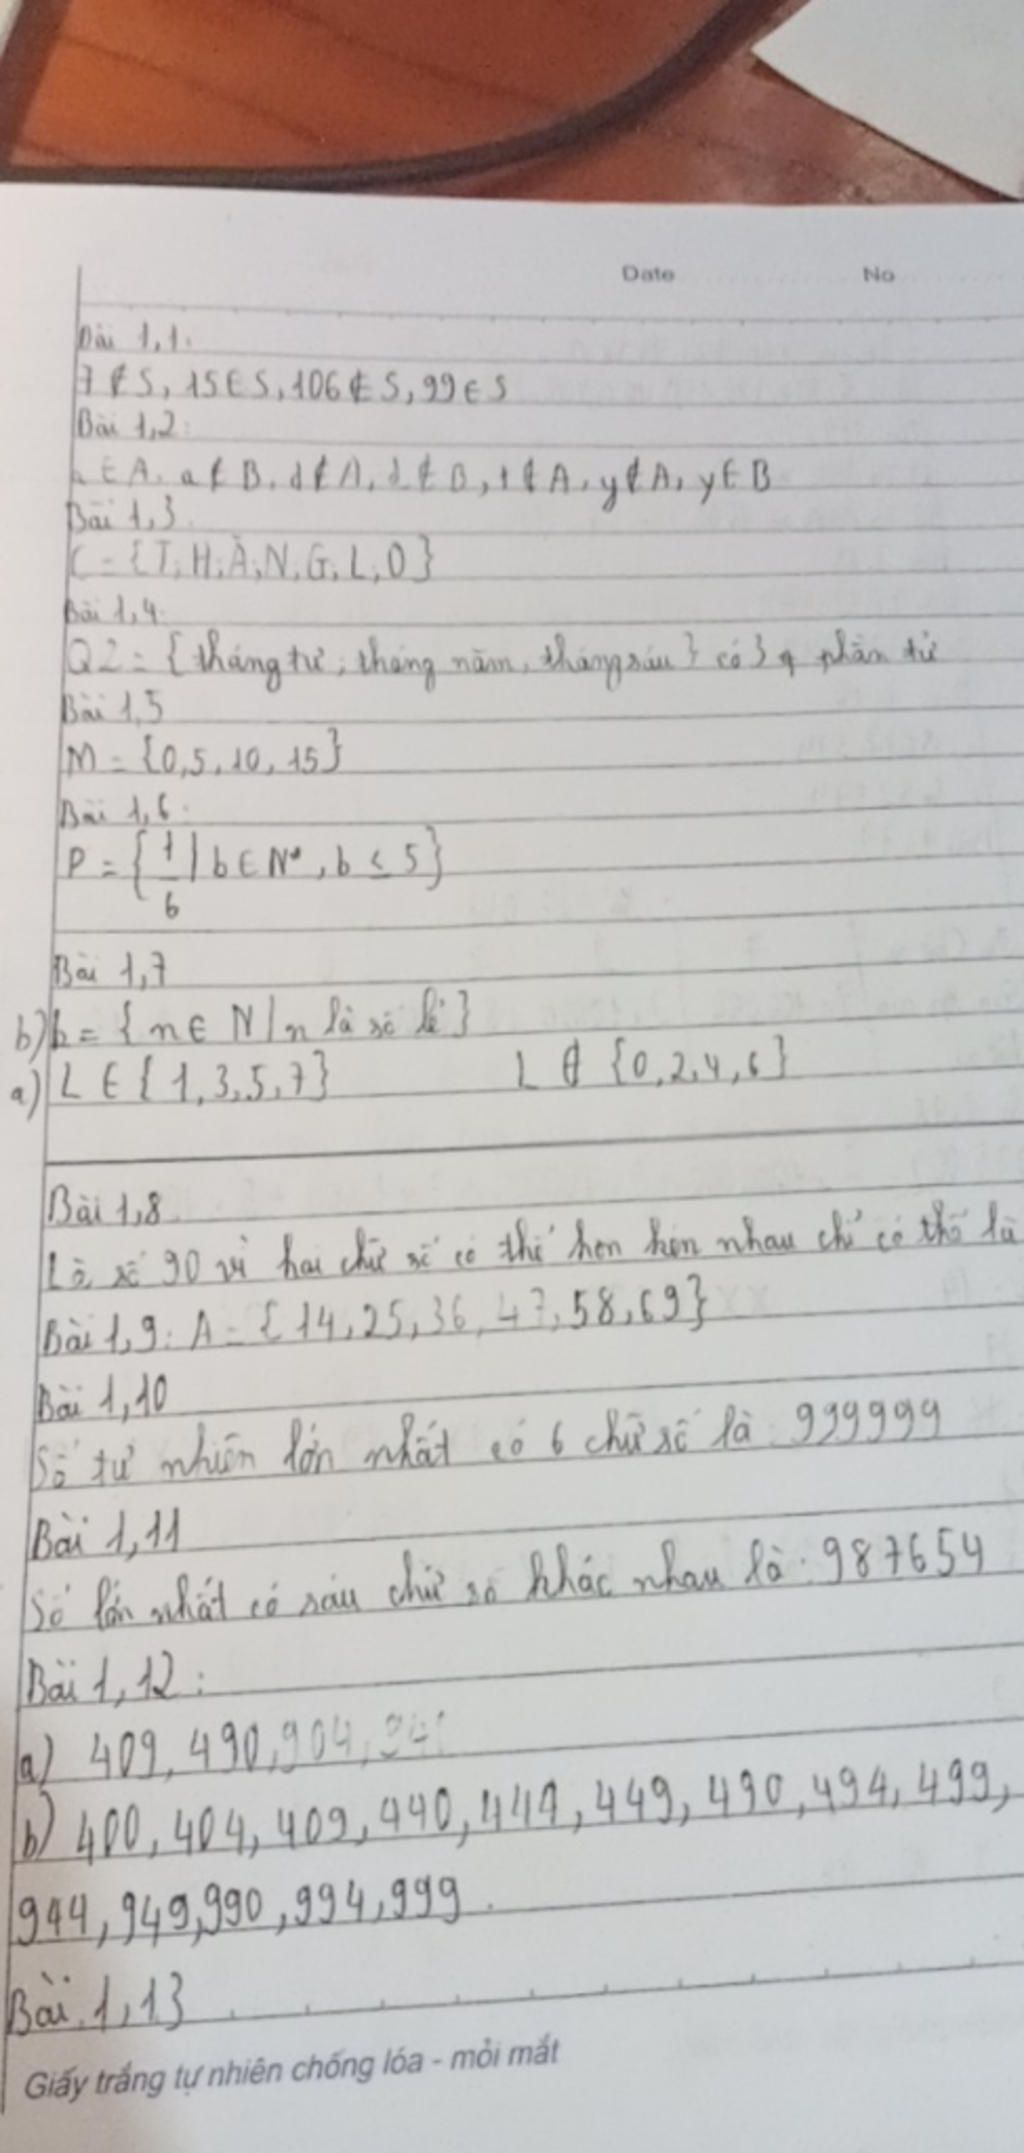 Date No
Bài 1,1.
7 ∉ S, 15 ∈ S, 106 ∉ S, 99 ∈ S
Bài 1,2:
∈ A, a ∉ B, d ∉ A, d ∉ B, t ∉ A, y ∉ A, y ∈ B
Bài 1,3
C = {T, H, Ă, N, G, L, O}
Bài 1,4.
Q2 = {tháng tư; tháng năm, tháng sáu} có 3 phần tử
Bài 1,5
M = {0, 5, 10, 15}
Bài 1,6:
P = {1/b | b ∈ N*, b ≤ 5}
Bài 1,7
b) = {n ∈ N | n là số lẻ}
a) L ∈ {1, 3, 5, 7} L ∌ {0, 2, 4, 6}
Bài 1,8
Là số 90 vì hai chữ số có thể hơn kém nhau chỉ có thể là
Bài 1,9: A = {14, 25, 36, 47, 58, 69}
Bài 1,10
Số tự nhiên lớn nhất có 6 chữ số là 999999
Bài 1,11
Số lớn nhất có sáu chữ số khác nhau là: 987654
Bài 1,12:
a) 409, 490, 904, 940
b) 400, 404, 409, 440, 444, 449, 490, 494, 499,
944, 949, 990, 994, 999.
Bài 1,13
Giấy trắng tự nhiên chống lóa - mỏi mắt